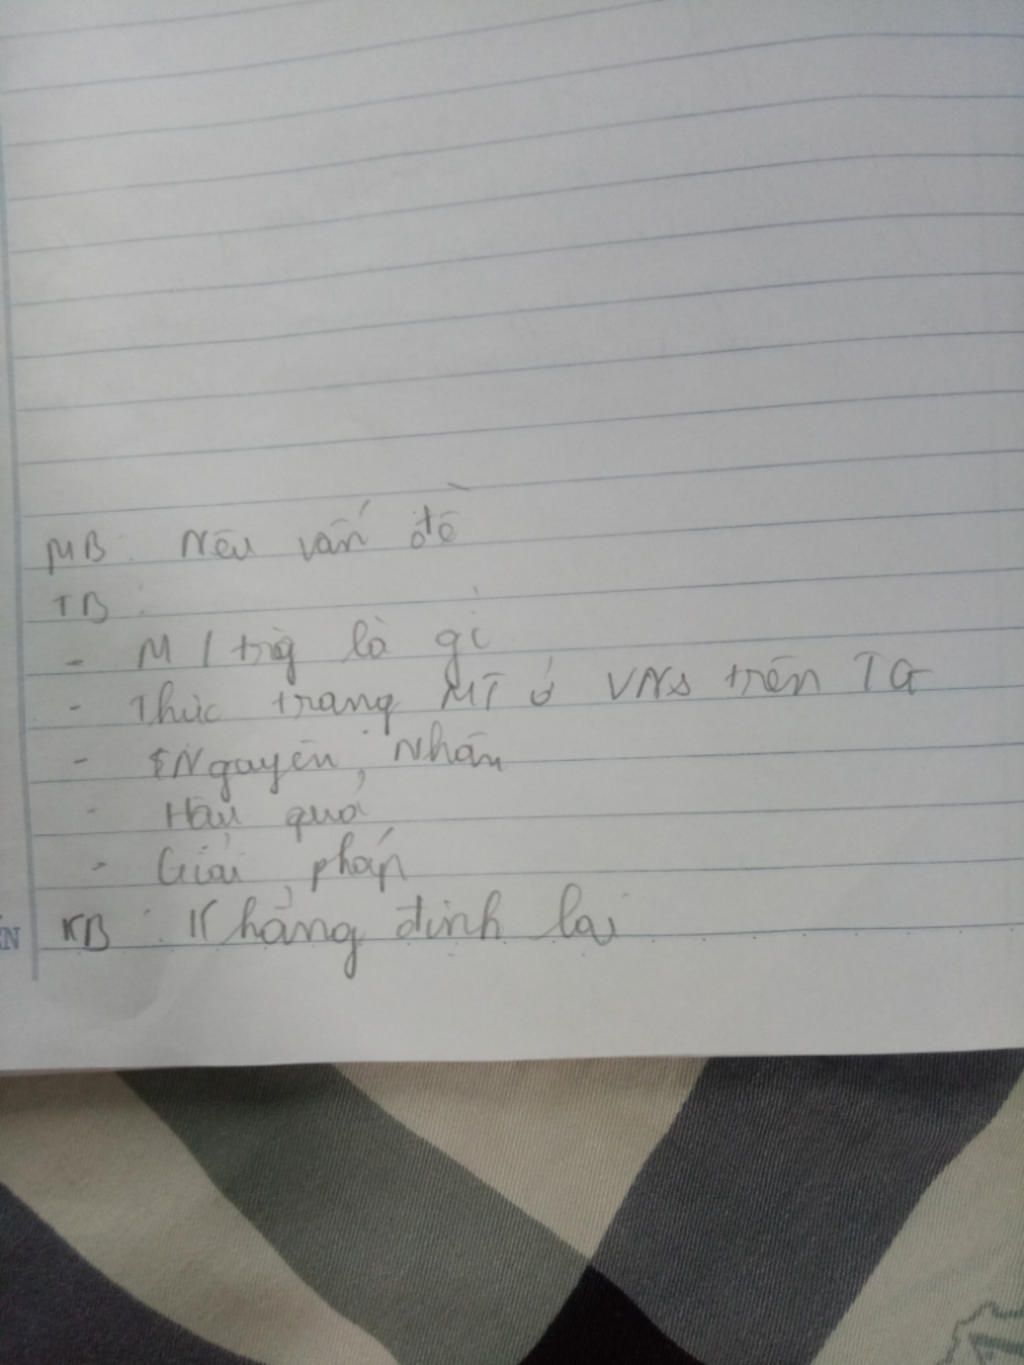 MB: Nêu vấn đề
TB:
- M/trg là gì
- Thực trạng MT ở VN & trên TG
- Nguyên nhân
- Hậu quả
- Giải pháp
KB: Khẳng định lại